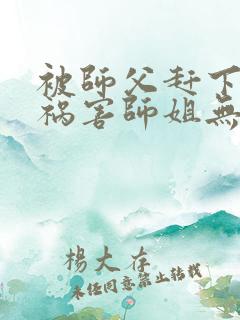 被師父赶下
禍害師姐無
楊大存
未经同意禁止转载